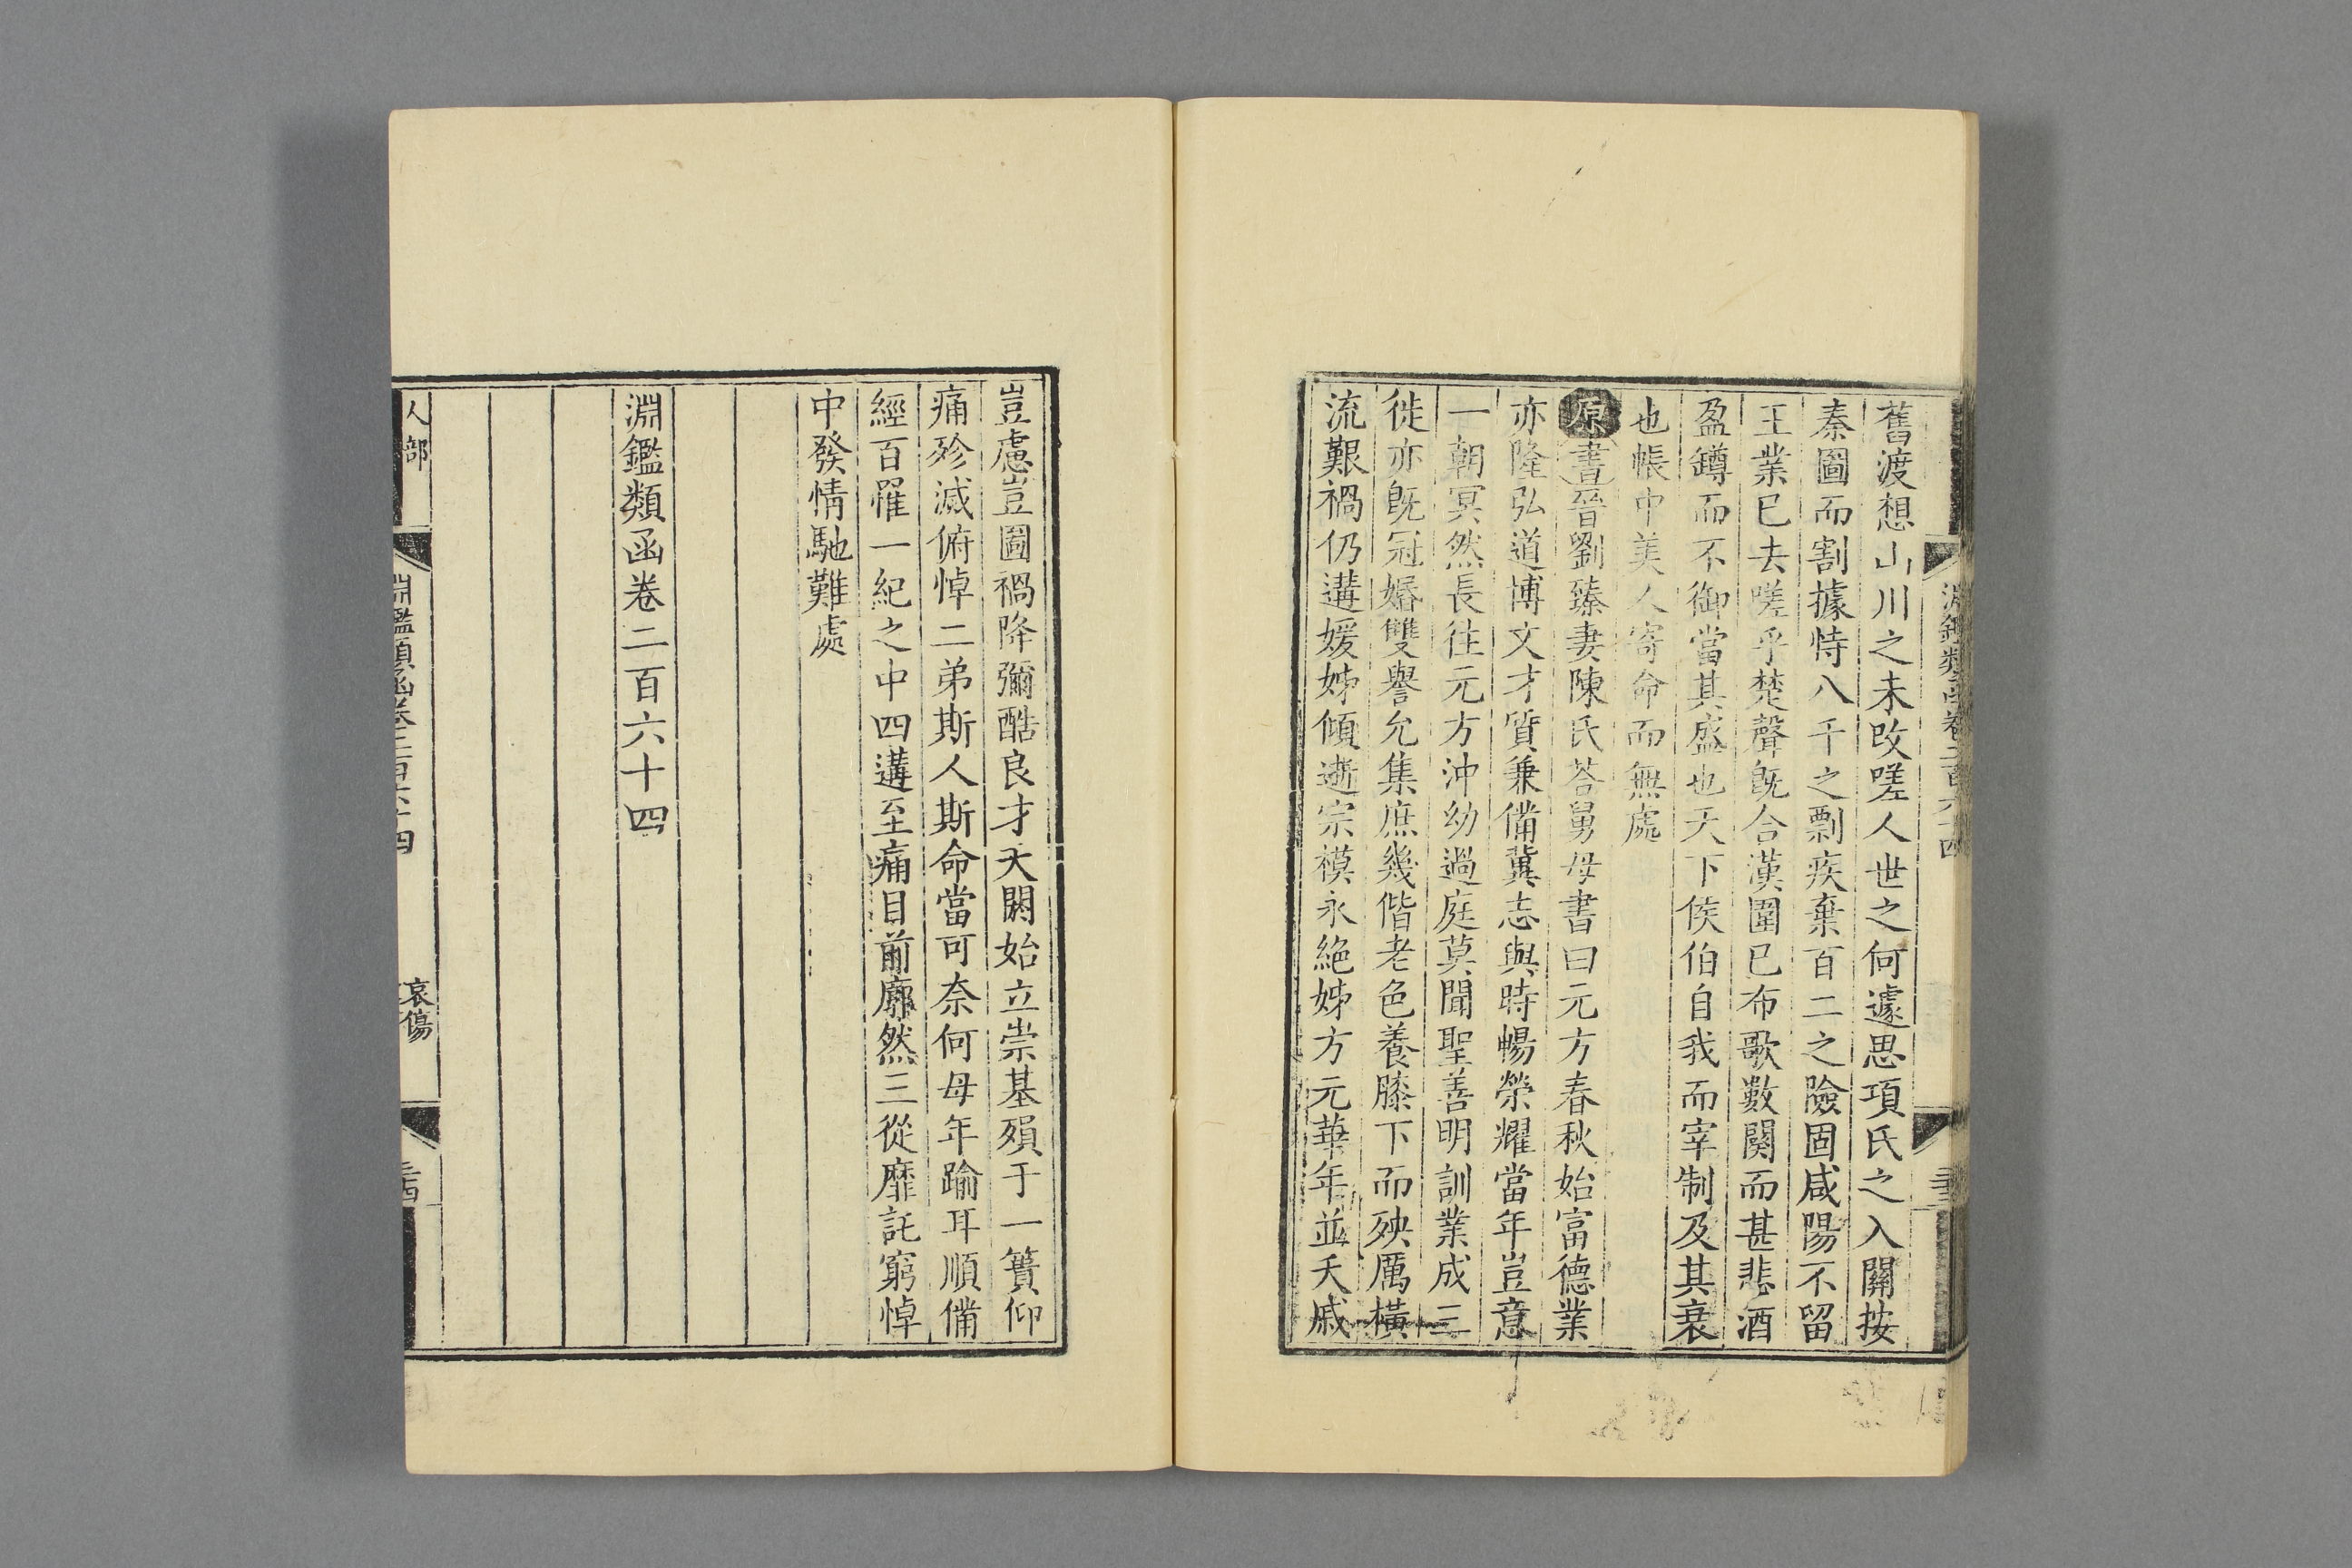 舊渡想山川之未改嗟人世之何遽思項氏之入關按
秦圖而割據恃八千之剽疾棄百二之險固咸陽不留
王業已去嗟乎楚聲旣合漢圍已布歌數闋而甚悲酒
盈罇而不御當其盛也天下侯伯自我而宰制及其衰
也帳中美人寄命而無處
原書晉劉臻妻陳氏荅舅母書曰元方春秋始富德業
亦隆弘道博文才質兼備冀志與時暢榮耀當年豈意
一朝冥然長往元方沖幼過庭莫聞聖善明訓業成三
徙亦旣冠婚雙譽允集庶幾偕老色養膝下而殃厲橫
流艱禍仍遘媛姊傾逝宗模永絕姊方元華年並夭戚
淵鑑類函卷二百六十四
豈慮豈圖禍降彌酷良才夭闕始立崇基殞于一簣仰
痛殄滅俯悼二弟斯人斯命當可奈何母年踰耳順備
經百罹一紀之中四遘至痛目前廓然三從靡託窮悼
中發情馳難處
淵鑑類函卷二百六十四
人部
淵鑑類函卷二百六十四
哀傷
三十四